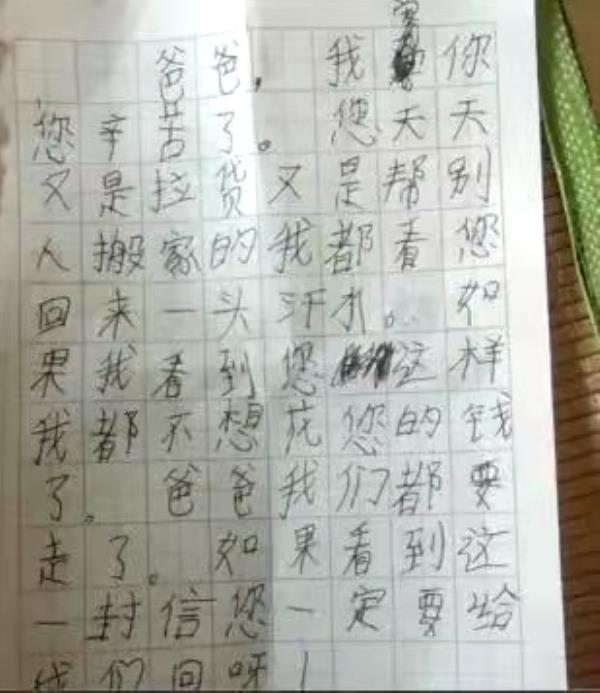 爸爸,我你
您辛苦了。您天天
又是拉货又是帮别
人搬家的我都看您
回来一头汗水。如
果我看到您这样
我都不想花您的钱
了。爸爸我们都要
走了。如果看到这
一封信您一定要给
我们回呀!